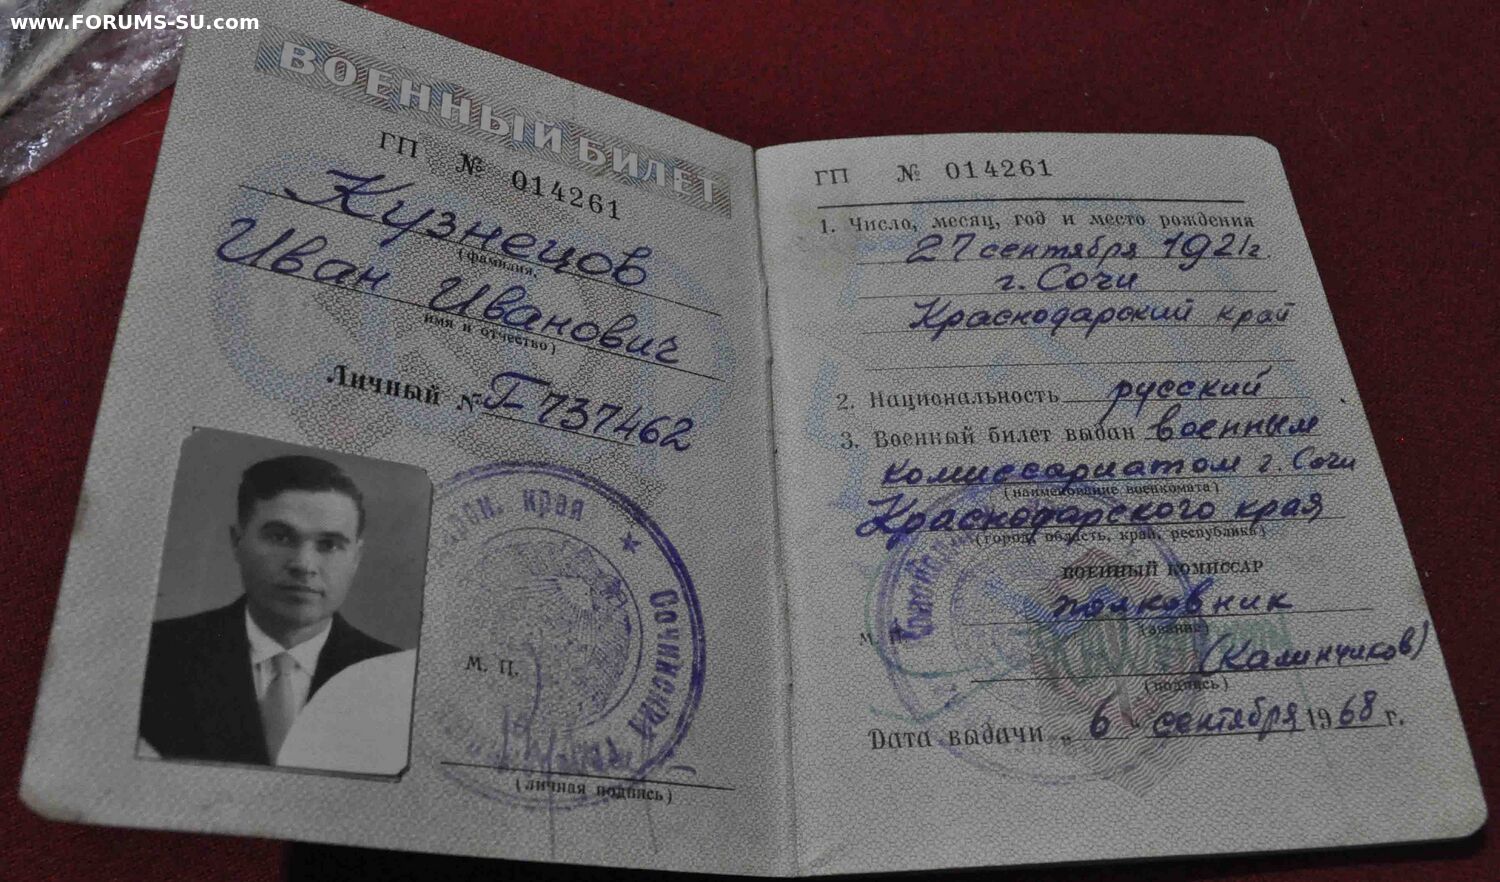 www.FORUMS-SU.com
ВОЕННЫЙ БИЛЕТ
ГП № 014261
Кузнецов
(фамилия,
Иван Иванович
имя и отчество)
Личный № Г-737462
край. края ★ Сочинский г
М. П.
(личная подпись)
ГП № 014261
1. Число, месяц, год и место рождения
27 сентября 1921 г.
г. Сочи
Краснодарский край
2. Национальность русский
3. Военный билет выдан военным
комиссариатом г. Сочи
(наименование военкомата)
Краснодарского края
(город, область, край, республика)
ВОЕННЫЙ КОМИССАР
полковник
(звание)
М.
(Калинчиков)
(подпись)
Дата выдачи „ 6 " сентября 1968 г.